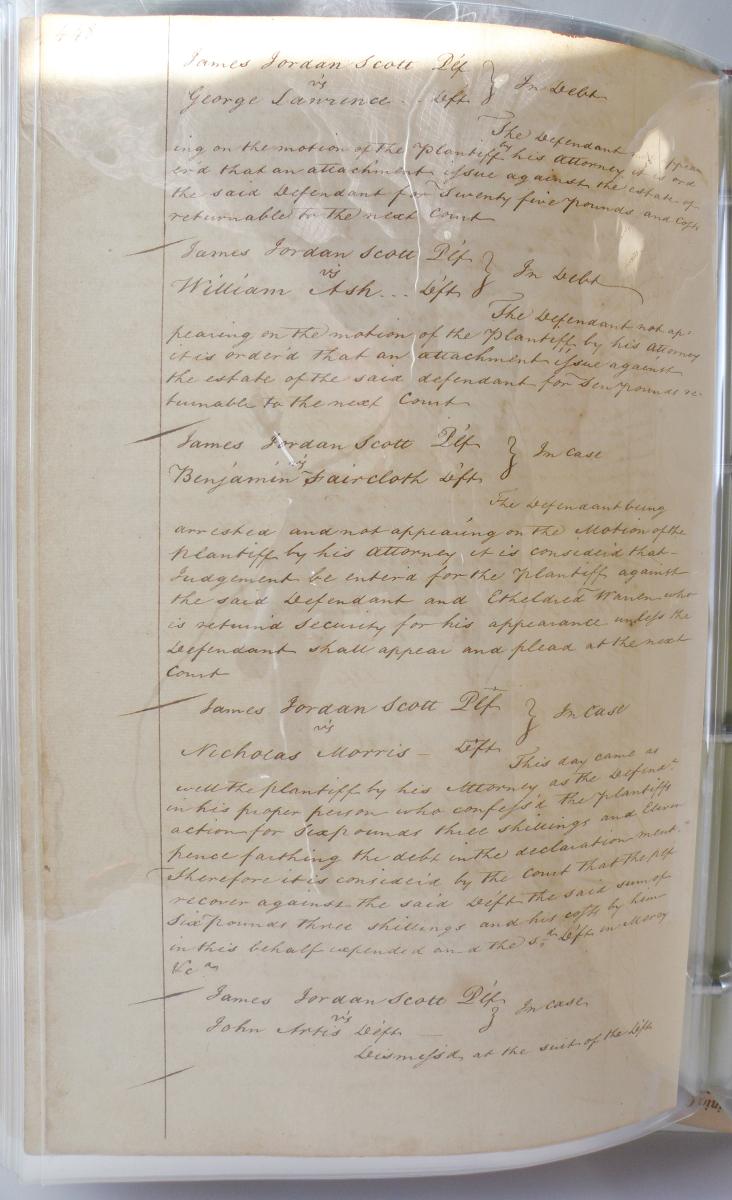 448
James Jordan Scott Plf } In Debt
vs
George Lawrence .. Deft
The Defendant not appear
ing on the motion of the Plantiff by his Attorney it is ord
er'd that an attachment issue against the estate of
the said Defendant for Twenty five pounds and Costs
returnable to the next Court
James Jordan Scott Plf } In Debt
vs
William Ash ... Deft
The Defendant not ap:
pearing on the motion of the Plantiff by his Attorney
it is order'd that an attachment issue against
the estate of the said defendant for Ten pounds re-
turnable to the next Court
James Jordan Scott Plf } In Case
vs
Benjamin Faircloth Deft
The Defendant being
arrested and not appearing on the Motion of the
Plantiff by his Attorney it is consider'd that
Judgement be enter'd for the Plantiff against
the said Defendant and Etheldred Warren who
is return'd Security for his appearance unless the
Defendant shall appear and plead at the next
Court
James Jordan Scott Plf } In Case
vs
Nicholas Morris - Deft
This day came as
well the plantiff by his Attorney as the Defendt
in his proper person who confess'd the Plantiffs
action for Six pounds three shillings and Eleven
pence farthing the debt in the declaration ment.
Therefore it is consider'd by the Court that the plf
recover against the said Deft the said sum of
Six pounds three shillings and his costs by him
in this behalf expended and the sd. Deft in Mercy
&ca
James Jordan Scott Plf } In case
vs
John Artis Deft
Dismiss'd at the suit of the Deft